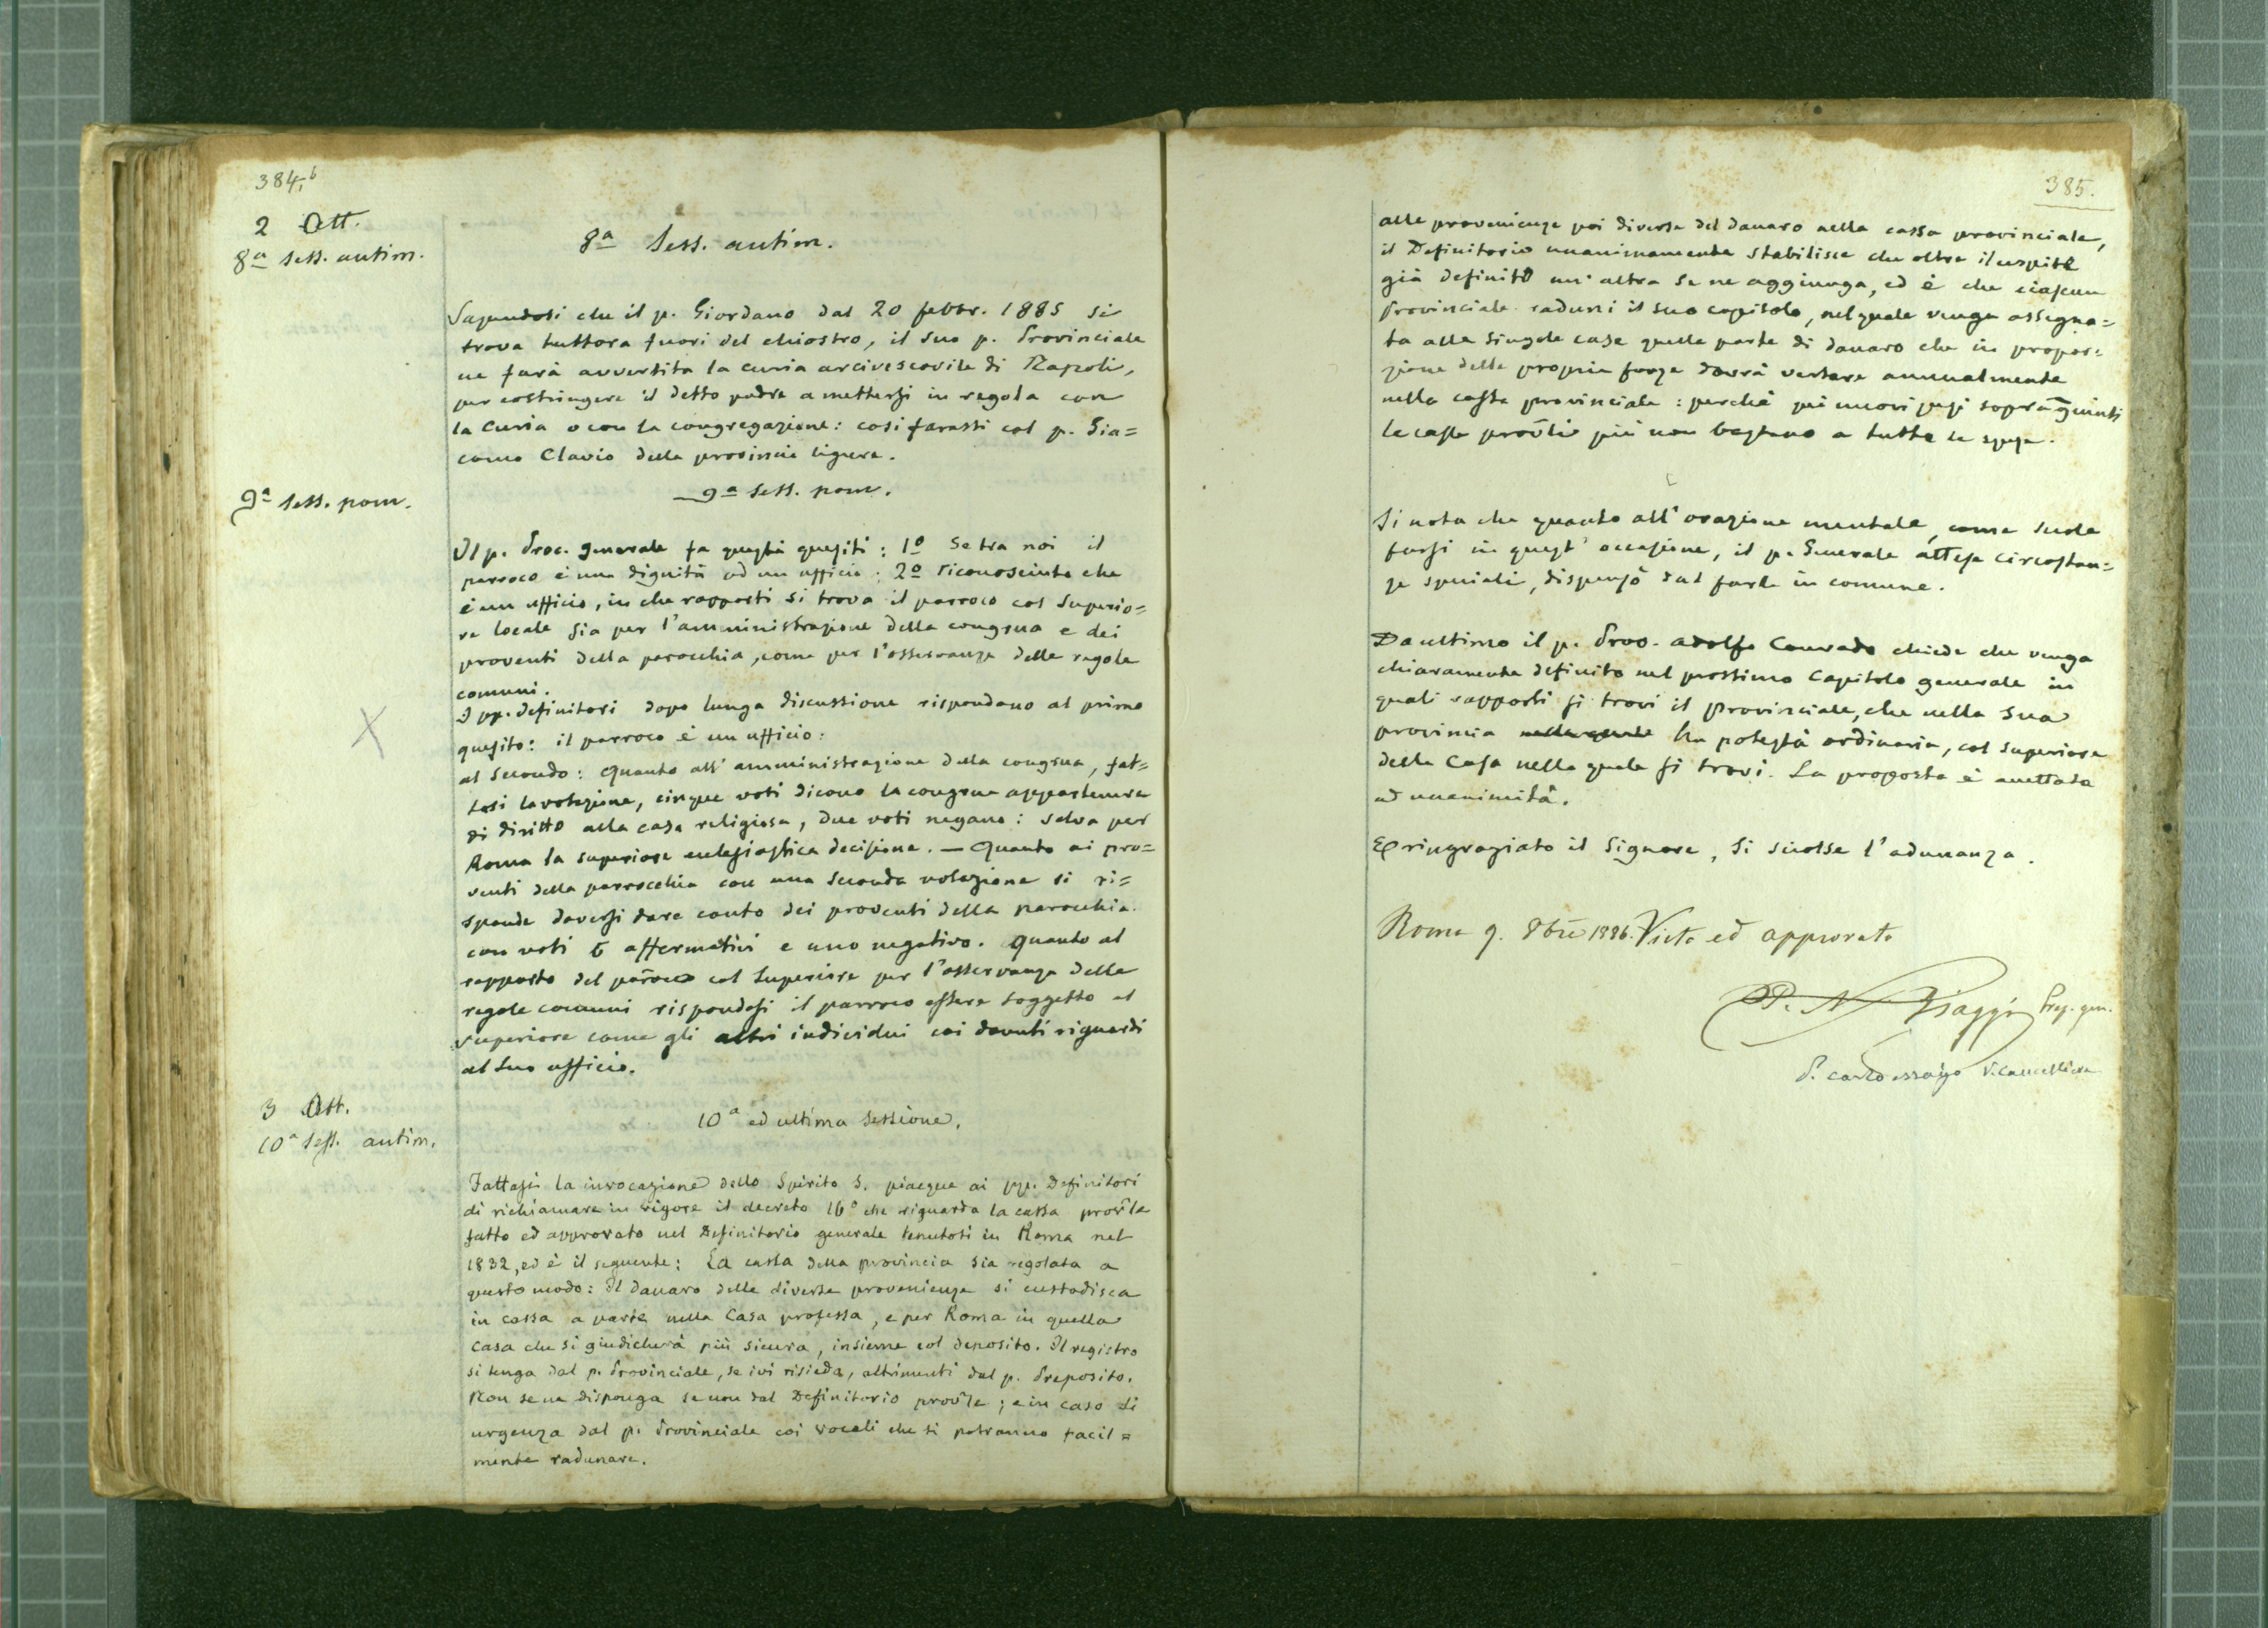 384,b
2 Ott.
8ª sess. antim.
8ª Sess. antim.
Sapendosi che il p. Giordano dal 20 febbr. 1885 si
trova tuttora fuori del chiostro, il suo p. Provinciale
ne farà avvertita la curia arcivescovile di Napoli,
per costringere il detto padre a mettersi in regola con
la Curia o con la congregazione: così farassi col p. Gia=
como Clavio della provincia ligure.
9ª sess. pom.
9ª sess. pom.
Il p. Proc. generale fa questi quesiti: 1º Se tra noi il
parroco è una dignità od un ufficio: 2º riconosciuto che
è un ufficio, in che rapporti si trova il parroco col Superio=
re locale sia per l'amministrazione della congrua e dei
proventi della parocchia, come per l'osservanza delle regole
comuni.
I pp. definitori dopo lunga discussione rispondono al primo
quesito: il parroco è un ufficio:
al Secondo: Quanto all'amministrazione della congrua, fat=
tasi la votazione, cinque voti dicono la congrua appartenere
di diritto alla casa religiosa, due voti negano: salva per
Roma la superiore ecclesiastica decisione. — Quanto ai pro=
venti della parrocchia con una seconda votazione si ri=
sponde doversi dare conto dei proventi della parocchia.
con voti 6 affermativi e uno negativo. Quanto al
rapporto del paroco col Superiore per l'osservanza delle
regole comuni rispondesi il parroco essere soggetto al
superiore come gli altri individui coi dovuti riguardi
al suo ufficio.
3 Ott.
10ª Sess. antim.
10ª ed ultima sessione.
Fattasi la invocazione dello Spirito S. piacque ai pp. Definitori
di richiamare in vigore il decreto 16º che riguarda la cassa prov̄le
fatto ed approvato nel Definitorio generale tenutosi in Roma nel
1832, ed è il seguente: La cassa della provincia sia regolata a
questo modo: Il danaro delle diverse provenienze si custodisca
in cassa a parte nella Casa professa, e per Roma in quella
casa che si giudicherà più sicura, insieme col deposito. Il registro
si tenga dal p. Provinciale, se ivi risieda, altrimenti dal p. Preposito.
Non se ne disponga se non dal Definitorio prov̄le; e in caso di
urgenza dal p. Provinciale coi vocali che si potranno facil=
mente radunare.
385.
alle provenienze poi diverse del danaro nella cassa provinciale,
il Definitorio unanimamente stabilisce che oltre il cespite
già definito un'altra se ne aggiunga, ed è che ciascun
Provinciale raduni il suo capitolo, nel quale venga assegna=
ta alle singole case quella parte di danaro che in propor=
zione delle proprie forze dovrà versare annualmente
nella cassa provinciale: perchè pei nuovi pesi sopragiunti
le casse prov̄li più non bastano a tutte le spese.
Si nota che quanto all'orazione mentale, come suole
farsi in quest'occasione, il p. Generale attese circostan=
ze speciali, dispensò dal farle in comune.
Da ultimo il p. Prov. Adolfo Conrado chiede che venga
chiaramente definito nel prossimo Capitolo generale in
quali rapporti si trovi il provinciale, che nella sua
provincia nella quale ha potestà ordinaria, col superiore
della Casa nella quale si trovi. La proposta è accettata
ad unanimità.
E ringraziato il Signore, si sciolse l'adunanza.
Roma 9. 8bre 1886. Visto ed approvato
P. N. Biaggi Prep. gen.
P. Carlo Moizo V. Cancelliere